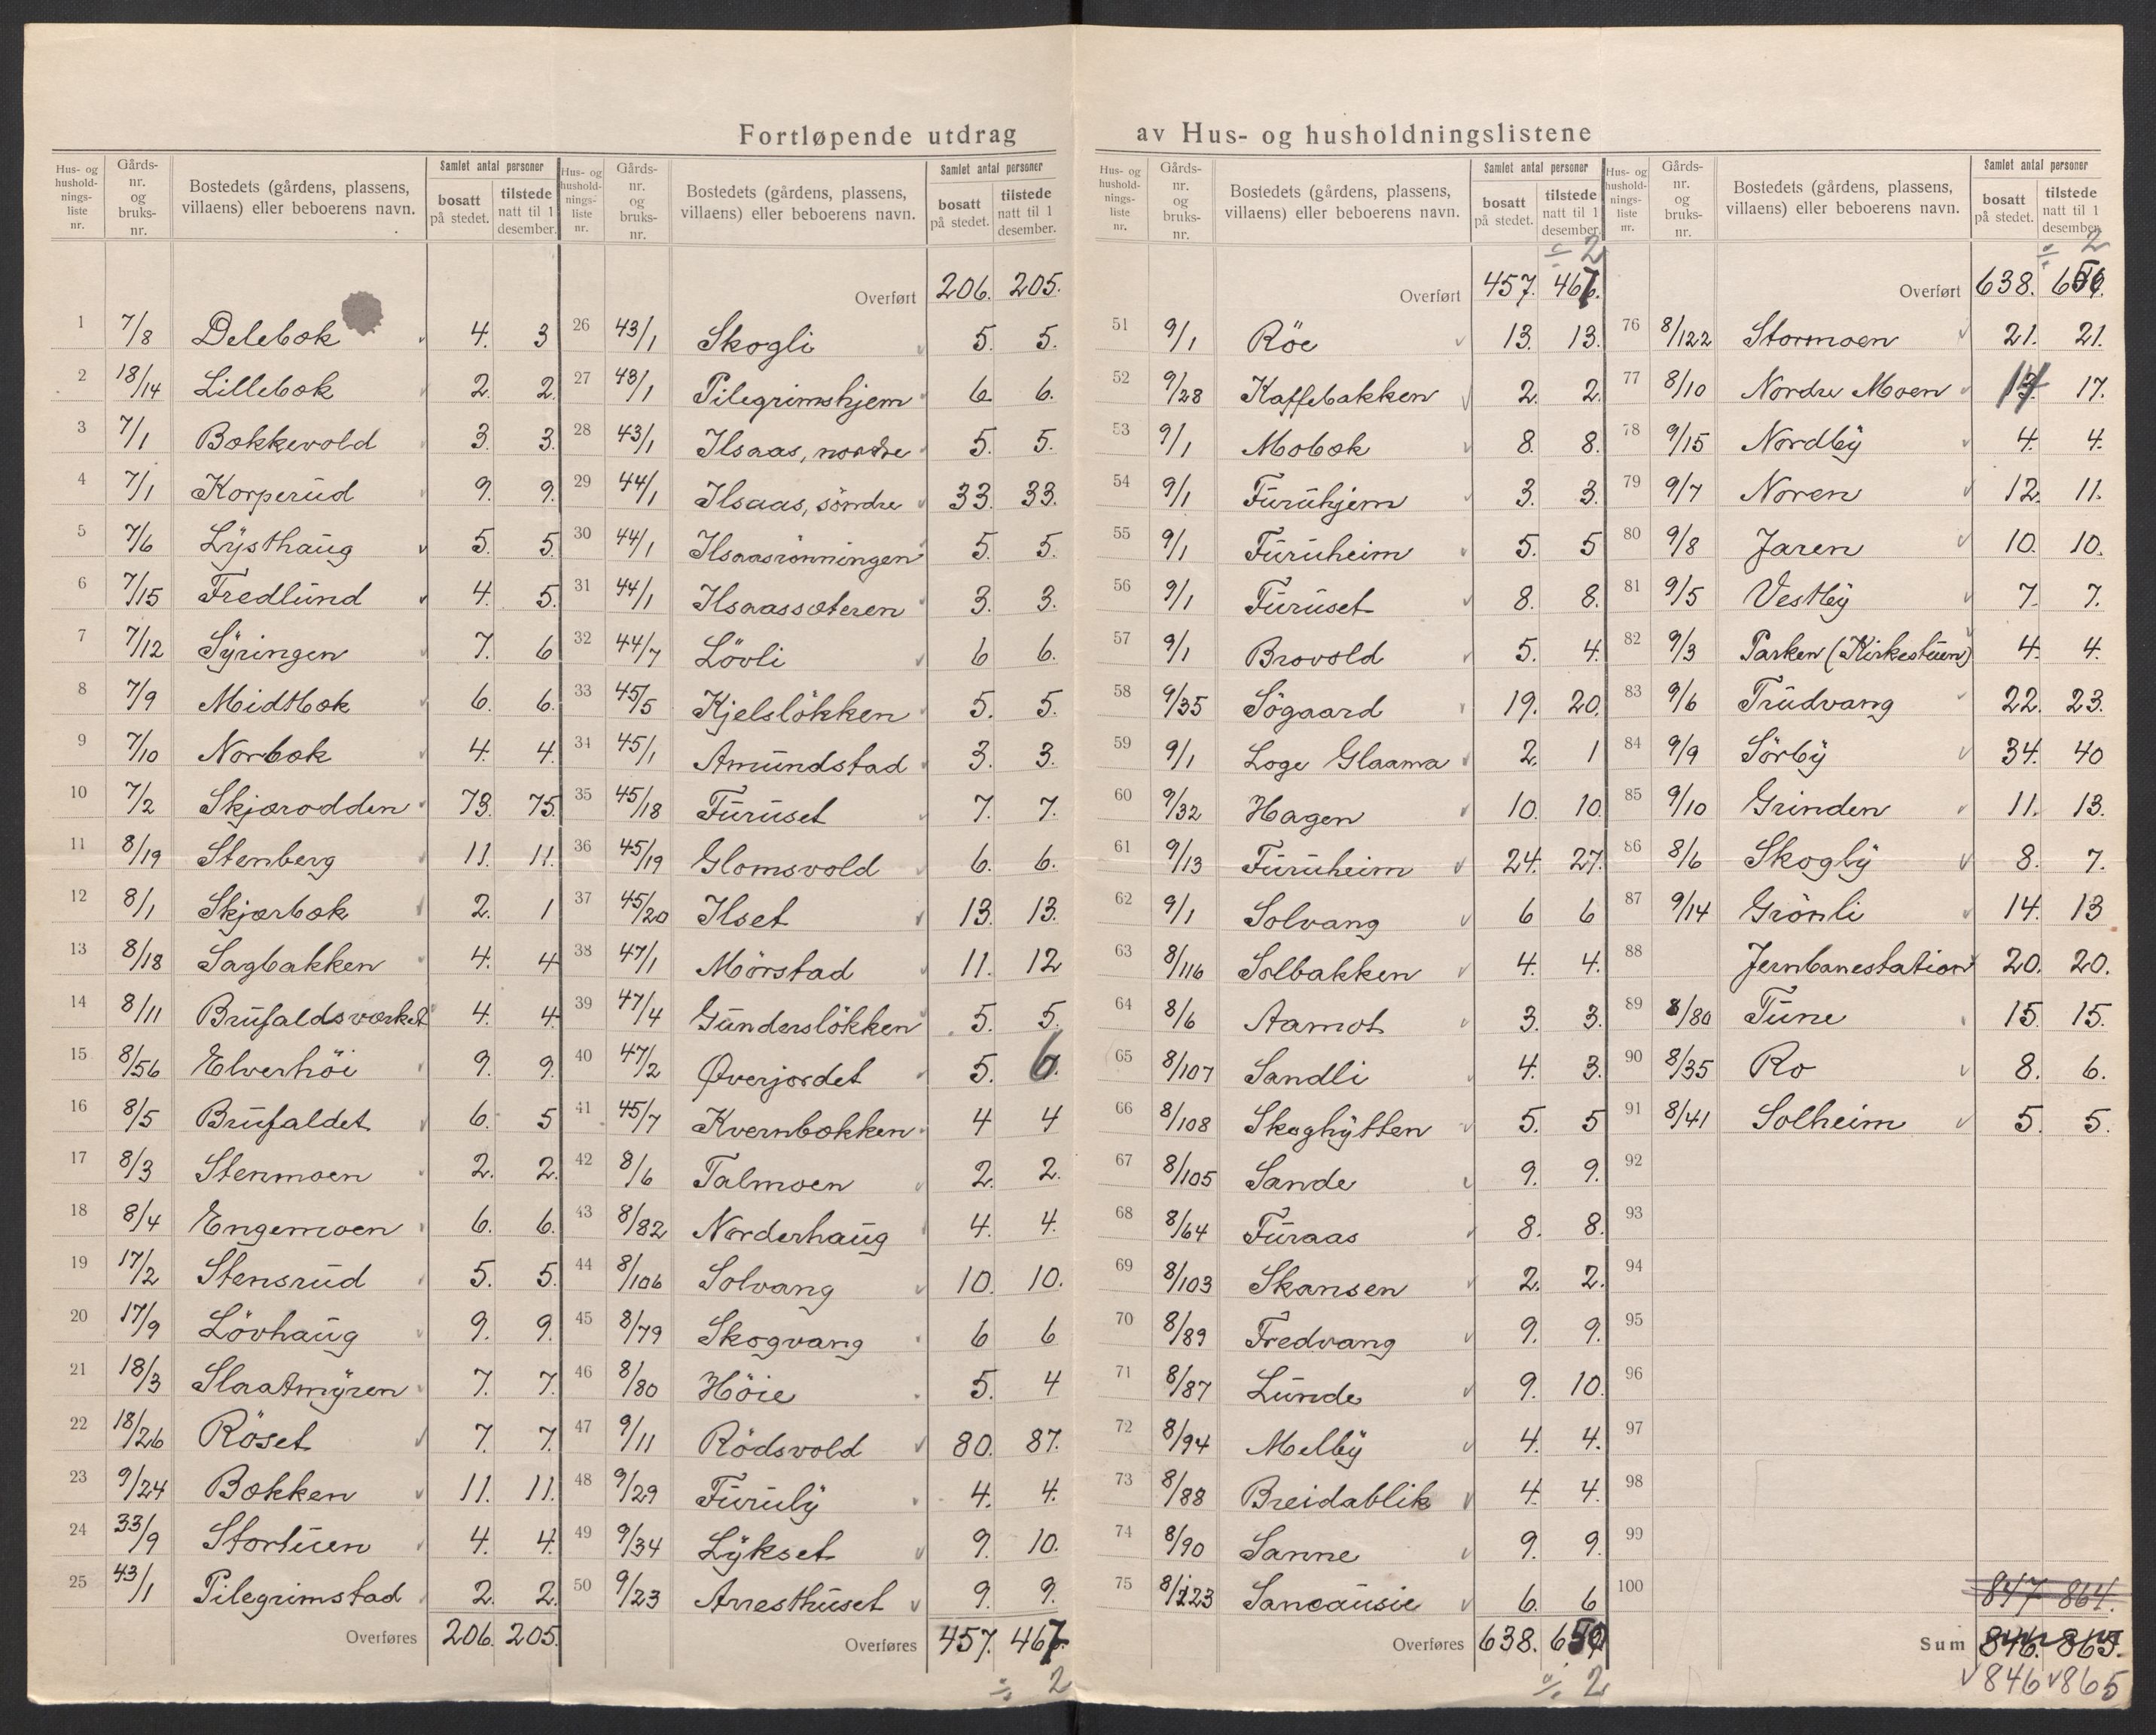 Fortløpende utdrag av Hus- og husholdningslistene
Hus- og hushold-nings-liste nr. | Gårds-nr. og bruks-nr. | Bostedets (gårdens, plassens, villaens) eller beboerens navn. | Samlet antal personer | bosatt på stedet. | tilstede natt til 1 desember.
1 7/8 Delebæk 4. 3
2 18/14 Lillebæk 2. 2.
3 7/1 Bækkevold 3. 3.
4 7/1 Korperud 9. 9.
5 7/6 Lysthaug 5. 5.
6 7/15 Fredlund 4. 5.
7 7/12 Syringen 7. 6
8 7/9 Midtbæk 6. 6.
9 7/10 Norbæk 4. 4.
10 7/2 Skjærodden 73. 75.
11 8/19 Stenberg 11. 11.
12 8/1 Skjærbæk 2. 1
13 8/18 Sagbakken 4. 4
14 8/11 Brufaldsværket 4. 4.
15 8/56 Elverhöi 9. 9.
16 8/5 Brufaldet 6. 5
17 8/3 Stenmoen 2. 2.
18 8/4 Engemoen 6. 6.
19 17/2 Stensrud 5. 5.
20 17/9 Lövhaug 9. 9.
21 18/3 Slaatmyren 7. 7.
22 18/26 Röset 7. 7.
23 9/24 Bækken 11. 11.
24 33/9 Stortuen 4. 4.
25 43/1 Pilegrimstad 2. 2.
Overføres 206. 205.
Hus- og hushold-nings-liste nr. | Gårds-nr. og bruks-nr. | Bostedets (gårdens, plassens, villaens) eller beboerens navn. | Samlet antal personer | bosatt på stedet. | tilstede natt til 1 desember.
Overført 206. 205.
26 43/1 Skogli 5. 5.
27 43/1 Pilegrimshjem 6 6.
28 43/1 Ilsaas, nordre 5. 5.
29 44/1 Ilsaas, söndre 33. 33.
30 44/1 Ilsaasrönningen 5. 5.
31 44/1 Ilsaassæteren 3. 3.
32 44/7 Lövli 6 6.
33 45/5 Kjelslökken 5. 5.
34 45/1 Amundstad 3. 3.
35 45/18 Furuset 7. 7.
36 45/19 Glomsvold 6. 6.
37 45/20 Ilset 13. 13.
38 47/1 Mörstad 11. 12
39 47/4 Gunderslökken 5. 5.
40 47/2 Øverjordet 5. 6.
41 45/7 Kvernbækken 4 4
42 8/6 Talmoen 2. 2.
43 8/82 Norderhaug 4. 4.
44 8/106 Solvang 10. 10.
45 8/79 Skogvang 6 6
46 8/80 Höie 5. 4
47 9/11 Rödsvold 80. 87.
48 9/29 Furuly 4. 4.
49 9/34 Lykset 9. 10.
50 9/23 Arresthuset 9. 9.
Overføres 457. 467.
÷ 2
Hus- og hushold-nings-liste nr. | Gårds-nr. og bruks-nr. | Bostedets (gårdens, plassens, villaens) eller beboerens navn. | Samlet antal personer | bosatt på stedet. | tilstede natt til 1 desember.
÷ 2
Overført 457. 467.
51 9/1 Röe 13. 13.
52 9/28 Kaffebakken 2. 2.
53 9/1 Mobæk 8. 8.
54 9/1 Furuhjem 3. 3.
55 9/1 Furuheim 5. 5
56 9/1 Furuset 8. 8.
57 9/1 Brovold 5. 4.
58 9/35 Sögaard 19. 20.
59 9/1 Loge Glaama 2. 1
60 9/32 Hagen 10. 10.
61 9/13 Furuheim 24. 27.
62 9/1 Solvang 6 6
63 8/116 Solbakken 4. 4.
64 8/6 Aamot 3. 3.
65 8/107 Sandli 4. 3.
66 8/108 Skoghytten 5. 5
67 8/105 Sande 9. 9.
68 8/64 Furaas 8. 8.
69 8/103 Skansen 2. 2.
70 8/89 Fredvang 9. 9.
71 8/87 Lunde 9. 10.
72 8/94 Melby 4. 4.
73 8/88 Breidablik 4. 4.
74 8/90 Sanne 9. 9.
75 8/123 Sancausie 6. 6
Overføres 638. 650
÷ 2
Hus- og hushold-nings-liste nr. | Gårds-nr. og bruks-nr. | Bostedets (gårdens, plassens, villaens) eller beboerens navn. | Samlet antal personer | bosatt på stedet. | tilstede natt til 1 desember.
÷ 2
Overført 638. 650.
76 8/122 Stormoen 21. 21.
77 8/10 Nordre Moen 17.
78 9/15 Nordby 4. 4.
79 9/7 Noren 12. 11.
80 9/8 Jaren 10. 10.
81 9/5 Vestby 7. 7.
82 9/3 Parken (Kirkestuen) 4. 4.
83 9/6 Trudvang 22. 23.
84 9/9 Sörby 34. 40
85 9/10 Grinden 11. 13.
86 8/6 Skogly 8. 7.
87 9/14 Grönli 14. 13
88 Jernbanestation 20. 20.
89 8/80 Tune 15. 15.
90 8/35 Ro 8. 6.
91 8/41 Solheim 5. 5.
92
93
94
95
96
97
98
99
100 847 864.
Sum 846. 865.
846 865